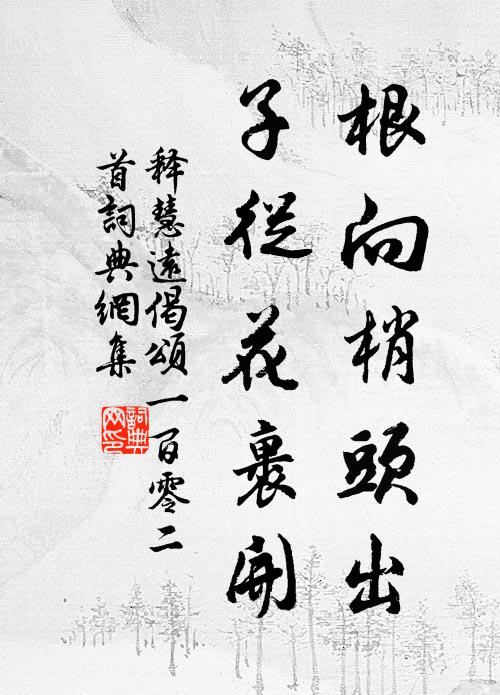 根向梢頭出
子從花裏開
释慧遠偈頌一百零二
首詞典網集
詞典
网印